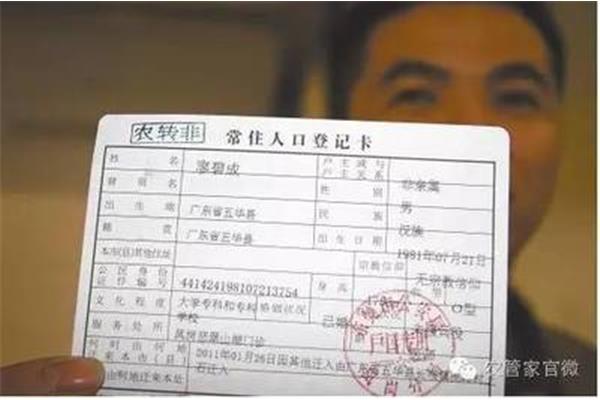 农转非 常住人口登记卡
姓名 廖碧成 户主或与户主关系 非亲属
曾用名 性别 男
出生地 广东省五华县 民族 汉族
籍贯 广东省五华县 出生日期 1981年07月21日
本市(县)其他住址 宗教信仰 无宗教信仰
公民身份证件编号 441424198107213754 身高 O型
文化程度 大学专科和专科 婚姻状况 已婚
学校
服务处所 山 门诊
何时由何地来本市(县) 2011年01月26日因其他迁入由广东省五华县
何时由何地迁来本址 迁入
农管家官微